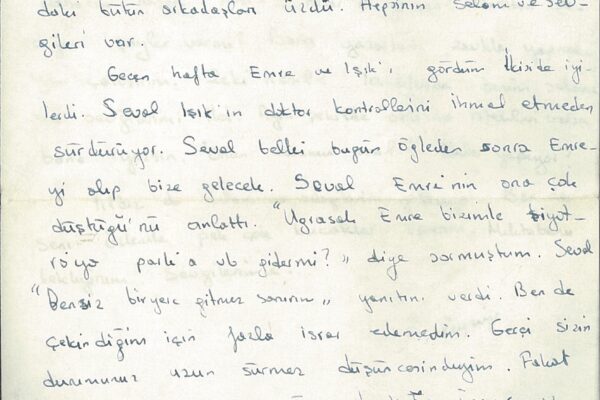 daki bütün arkadaşları üzdü. Hepsinin selam ve sev-
gileri var.
Geçen hafta Emre ve Işık'ı gördüm İkisi de iyi-
lerdi. Seval Işık'ın doktor kontrollerini ihmal etmeden
sürdürüyor. Seval belki bugün öğleden sonra Emre-
yi alıp bize gelecek. Seval Emre'nin ona çok
düştüğü'nü anlattı. "Uğrasak Emre bizimle tiyat-
royo park'a vb gidermi?" diye sormuştum. Seval
"Bensiz biryere gitmez sanırım" yanıtını verdi. Ben de
çekindiğim için fazla israr edemedim. Gerçi sizin
durumunuz uzun sürmez düşüncesindeyim. Fakat